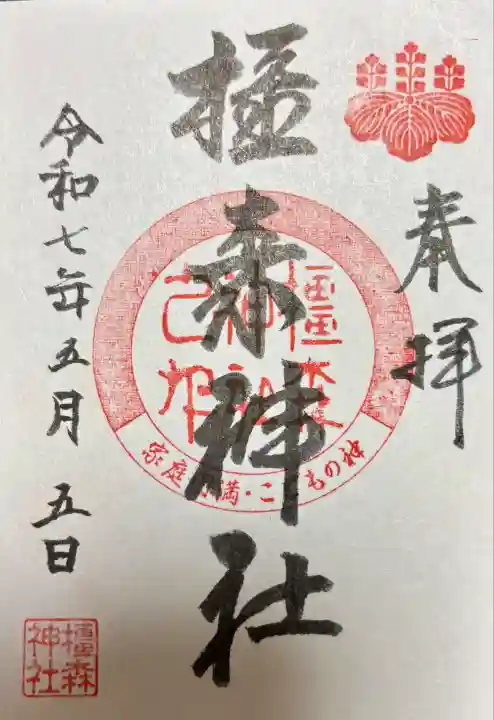 奉拝
橿森神社
令和七年五月五日
家庭円満・こどもの神
橿森
神社